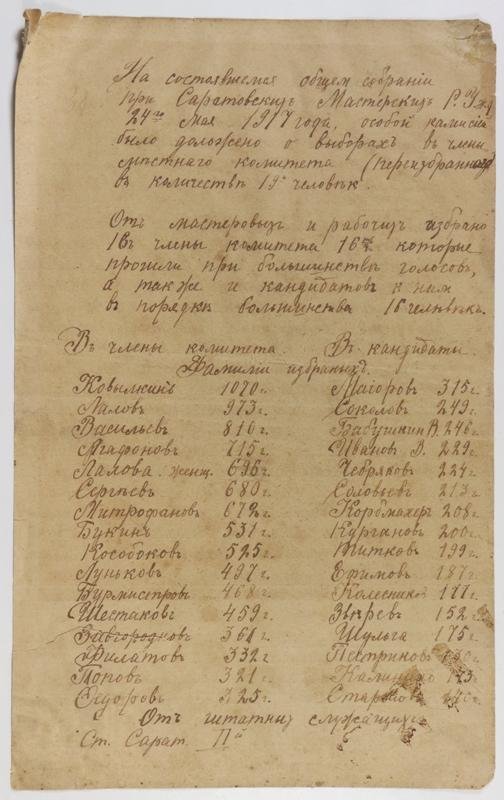 На состоявшемся общем собраніи
при Саратовскихъ Мастерскихъ Р. У. ж. д.
24го Мая 1917 года, особой комисіи
было доложено о выборахъ въ члены
мѣстнаго комитета (переизбраннаго)
въ количествѣ 19и человѣк.
Отъ мастеровыхъ и рабочихъ избрано
въ члены комитета 16 которые
прошли при большинствѣ голосовъ,
а также и кандидатовъ к ним
въ порядкѣ большинства 16 человѣкъ.
Въ члены комитета. Въ кандидаты.
Фамиліи избраныхъ.
Ковылкинъ 1070 г. Магоровъ 315 г.
Ламовъ 973 г. Соколовъ 249 г.
Васильевъ 816 г. Бабушкин В. 246 г.
Агафоновъ 715 г. Ивановъ В. 229 г.
Ламова женщ. 696 г. Чебряковъ 224 г.
Сергѣевъ 680 г. Соловьевъ 213 г.
Митрофановъ 672 г. Кордмахеръ 208 г.
Букинъ 531 г. Кургановъ 200 г.
Кособоковъ 525 г. Титковъ 199 г.
Луньковъ 497 г. Ефимовъ 187 г.
Бурмистровъ 468 г. Колесников 177 г.
Шестаковъ 459 г. Звѣревъ 152 г.
Завгородновъ 361 г. Шульга 175 г.
Филатовъ 332 г. Пестриновъ
Поповъ 321 г. Калинко
Сидоровъ 325 г. Старко
Отъ штатныхъ служащихъ
Ст. Сарат. IIй